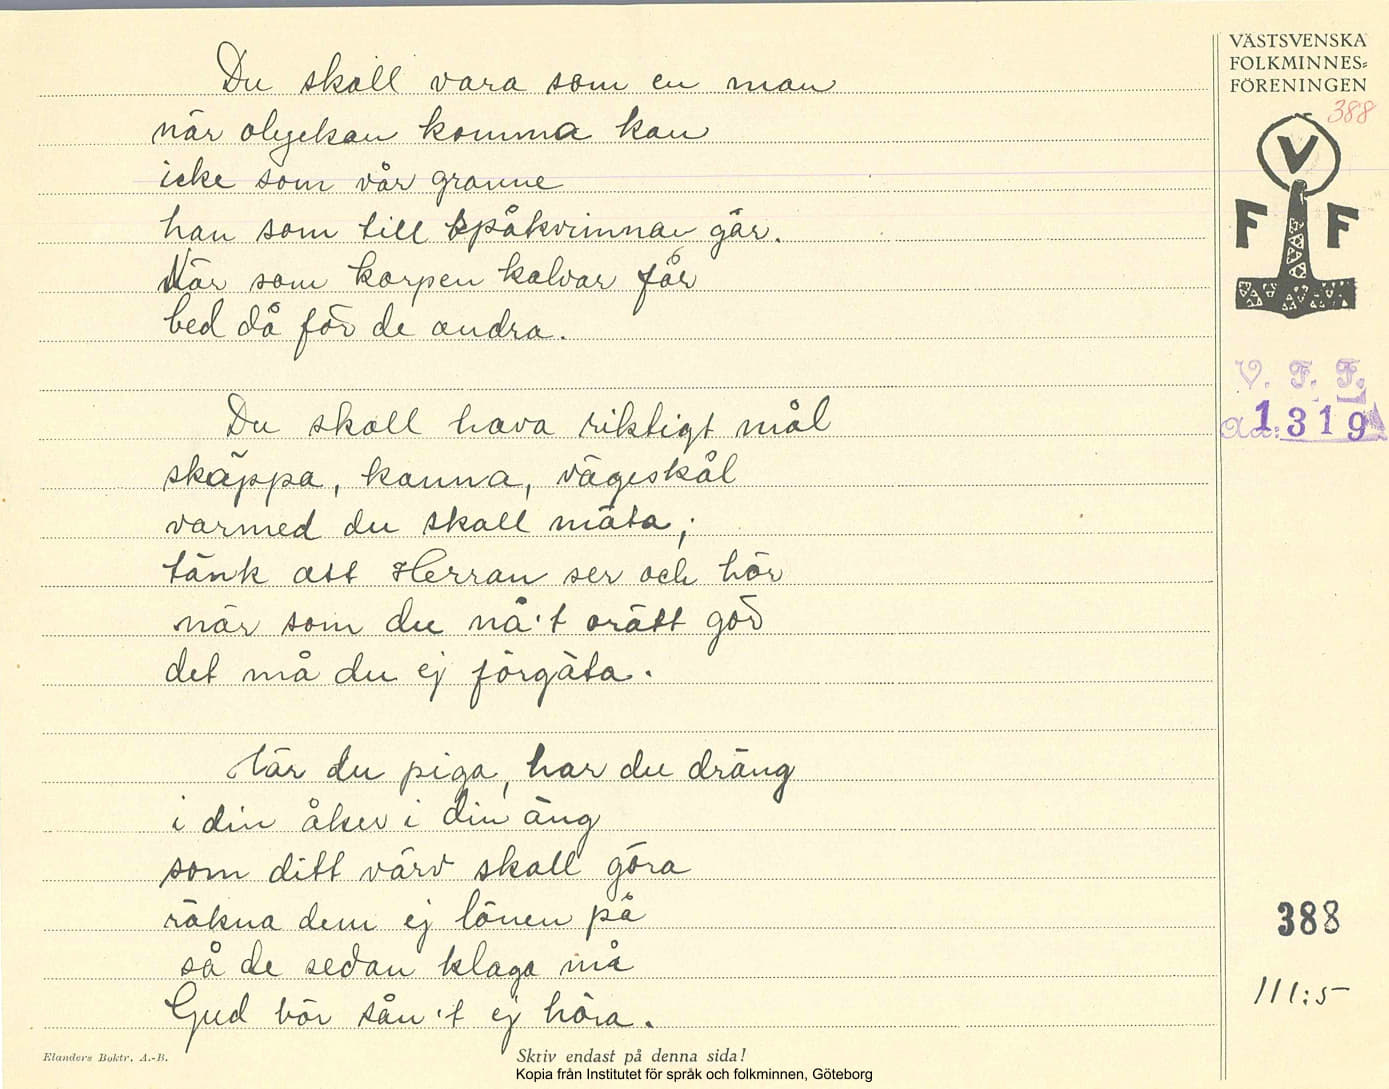 Du skall vara som en man
när olyckan komma kan
icke som vår granne
han som till spåkvinnan går.
När som korpen kalvar får
bed då för de andra.
Du skall hava riktigt mål
skäppa, kanna, vägeskål
varmed du skall mäta;
tänk att Herran ser och hör
när som du nå't orätt gör
det må du ej förgäta.
Här du piga, har du dräng
i din åker i din äng
som ditt värv skall göra
räkna dem ej lönen på
så de sedan klaga må
Gud bör sån't ej höra.
Elanders Boktr. A.-B.
Skriv endast på denna sida!
Kopia från Institutet för språk och folkminnen, Göteborg
VÄSTSVENSKA
FOLKMINNES-
FÖRENINGEN
388
V
F F
V. F. F.
1319
388
111:5